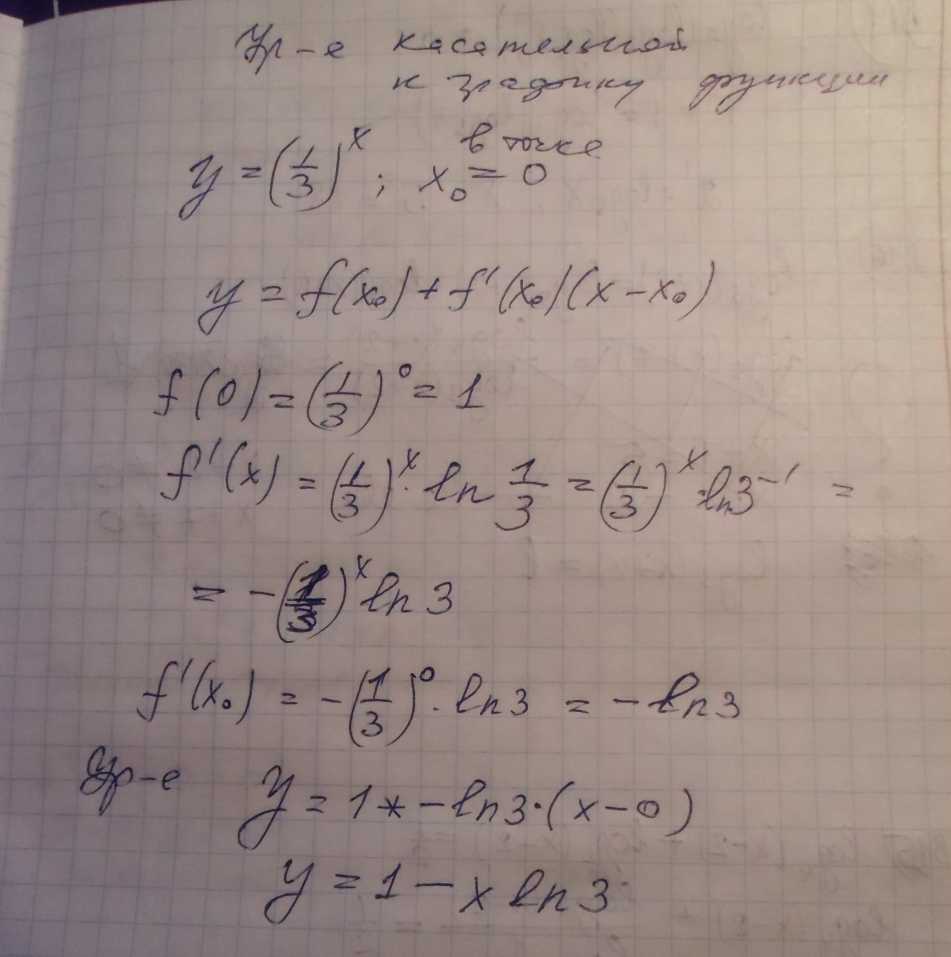 Ур-е касательной
к графику функции
в точке
y = (1/3)^x ; x₀ = 0
y = f(x₀) + f'(x₀)(x - x₀)
f(0) = (1/3)^0 = 1
f'(x) = (1/3)^x · ln 1/3 = (1/3)^x · ln3^-1 =
= -(1/3)^x ln 3
f'(x₀) = -(1/3)^0 · ln3 = -ln3
Ур-е y = 1 * - ln3·(x-0)
y = 1 - x ln 3